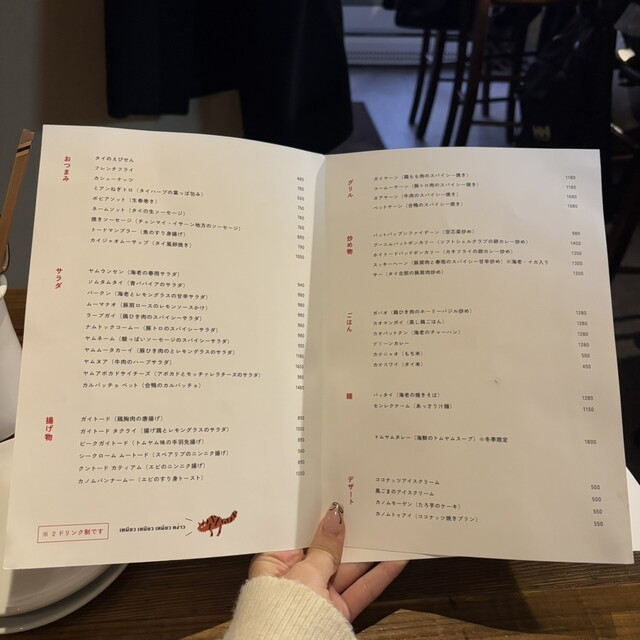 おつまみ
タイのえびせん
フレンチフライ
カシューナッツ
ミアンねぎトロ（タイハーブの葉っぱ包み）
ポピアソット（生春巻き）
ネームソット（タイの生ソーセージ）
焼きソーセージ（チェンマイ・イサーン地方のソーセージ）
トードマンプラー（魚のすり身揚げ）
カイジャオムーサップ（タイ風卵焼き）
サラダ
ヤムウンセン（海老の春雨サラダ）
ソムタムタイ（青パパイアのサラダ）
パークン（海老とレモングラスの甘辛サラダ）
ムーマナオ（豚肩ロースのレモンソースかけ）
ラープガイ（鶏ひき肉のスパイシーサラダ）
ナムトックコームー（豚トロのスパイシーサラダ）
ヤムネーム（酸っぱいソーセージのスパイシーサラダ）
ヤムムータカーイ（豚ひき肉とレモングラスのサラダ）
ヤムヌア（牛肉のハーブサラダ）
ヤムアボカドサイチーズ（アボカドとモッチャレラチーズのサラダ）
カルパッチョ ペット（合鴨のカルパッチョ）
揚げ物
ガイトード（鶏胸肉の唐揚げ）
ガイトード タクライ（揚げ鶏とレモングラスのサラダ）
ピークガイトード（トムヤム味の手羽先揚げ）
シークローム ムートード（スペアリブのニンニク揚げ）
クントード カティアム（エビのニンニク揚げ）
カノムパンナームー（エビのすり身トースト）
※２ドリンク制です
เหมียว เหมียว เหมียว หง่าว
グリル
ガイヤーン（鶏もも肉のスパイシー焼き） 1180
コームーヤーン（豚トロ肉のスパイシー焼き） 1180
ヌアヤーン（牛肉のスパイシー焼き） 1480
ペットヤーン（合鴨のスパイシー焼き） 1680
炒め物
パットパップンファイデーン（空芯菜炒め） 980
プーニムパットポンカリー（ソフトシェルクラブの卵カレー炒め） 1400
ホイトードパットポンカリー（カキフライの卵カレー炒め） 1200
スッキーヘーン（豚肩肉と春雨のスパイシー甘辛炒め）※海老・イカ入り 1300
サー（タイ北部の豚肩肉炒め） 1200
ごはん
ガパオ（鶏ひき肉のホーリーバジル炒め） 1280
カオマンガイ（蒸し鶏ごはん） 1280
カオパットクン（海老のチャーハン） 1280
グリーンカレー 1280
カオニャオ（もち米） 550
カオスワイ（タイ米） 450
麺
パッタイ（海老の焼きそば） 1280
センレクナーム（あっさり汁麺） 1150
トムヤムヌレー（海鮮のトムヤムスープ）※冬季限定 1800
デザート
ココナッツアイスクリーム 500
黒ごまのアイスクリーム 500
カノムモーゲン（たろ芋のケーキ） 550
カノムトゥアイ（ココナッツ焼きプリン） 550